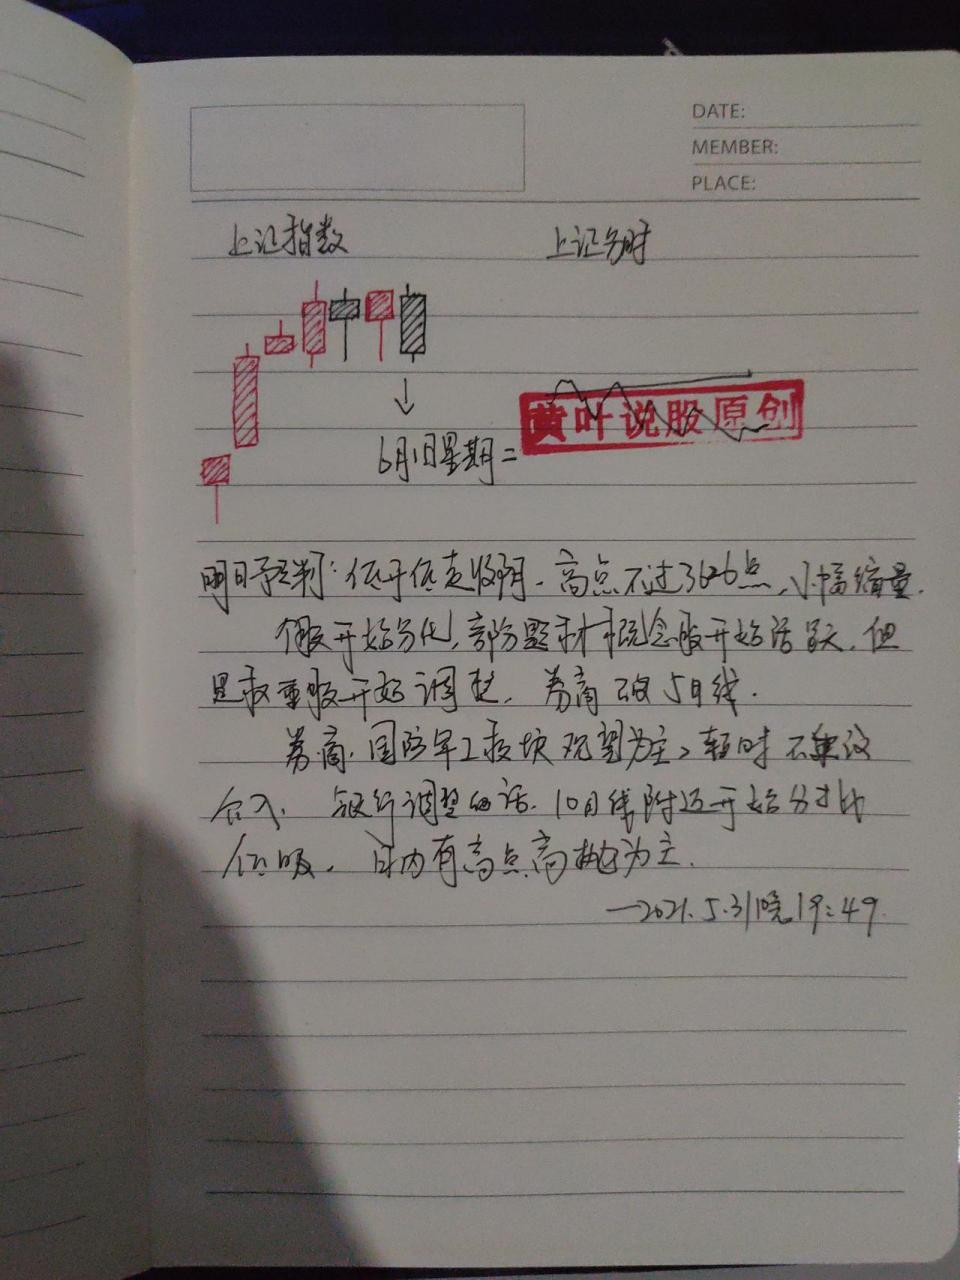 DATE:
MEMBER:
PLACE:
上证指数 上证分时
黄叶说股原创
6月1日星期二
明日予判:低开低走收阴.高点不过3626点,小幅缩量.
个股开始分化,部分题材概念股开始活跃.但
是权重股开始调整.券商不破5日线.
券商.国防军工板块观望为主,暂时不建议
介入.银行调整的话.10日线附近开始分批
低吸.日内有高点高抛为主.
—2021.5.31晚19:49